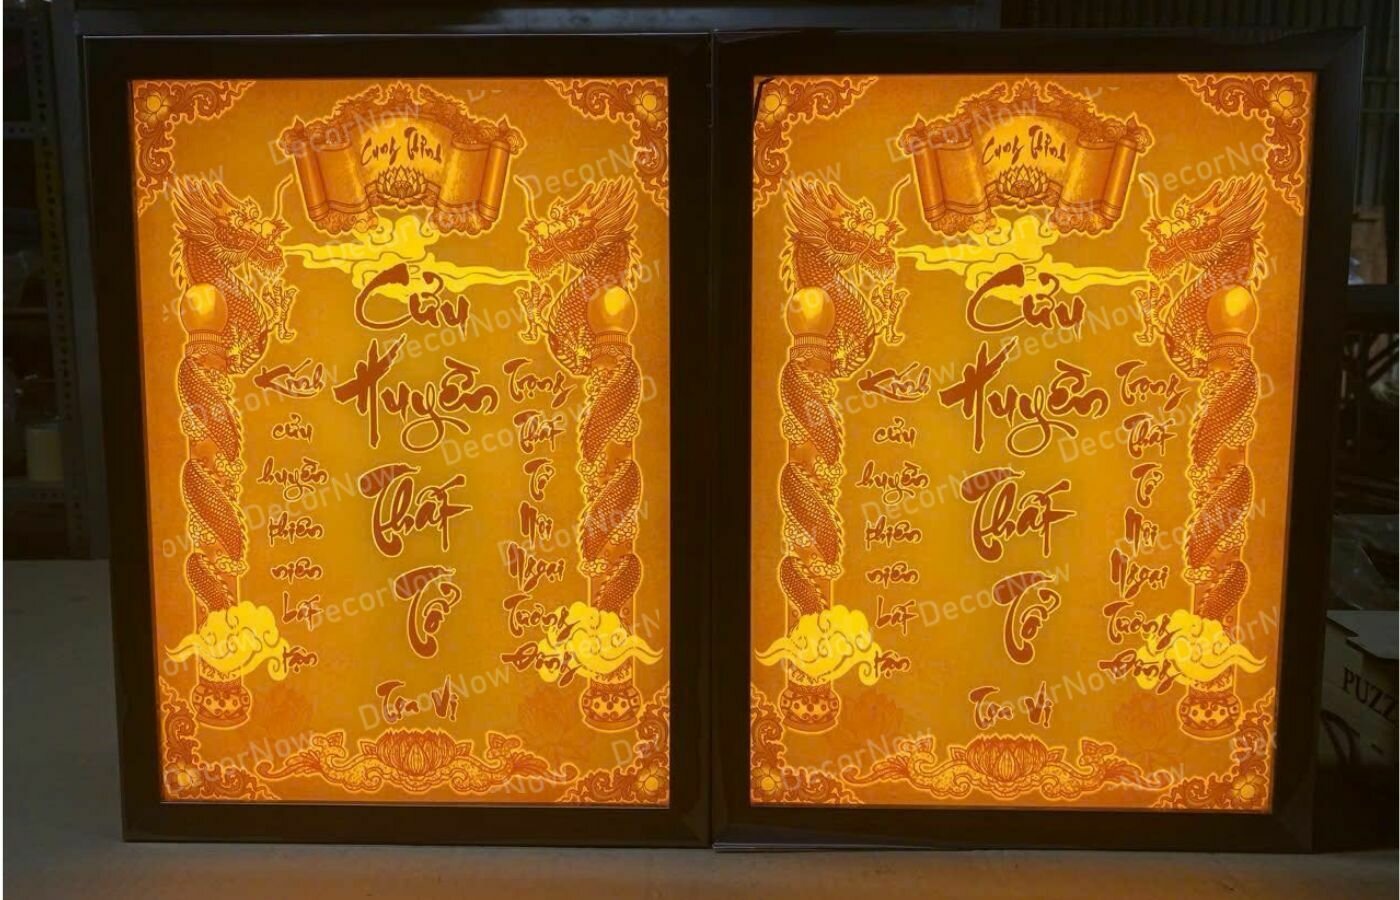 Cung Thỉnh
Cửu
Huyền
Thất
Tổ
Tọa Vị
Kính
cửu
huyền
thiên
niên
bất
tận
Trọng
Thất
Tổ
Nội
Ngoại
Tường
Đồng
Cung Thỉnh
Cửu
Huyền
Thất
Tổ
Tọa Vị
Kính
cửu
huyền
thiên
niên
bất
tận
Trọng
Thất
Tổ
Nội
Ngoại
Tường
Đồng
PUZZ
DecorNow